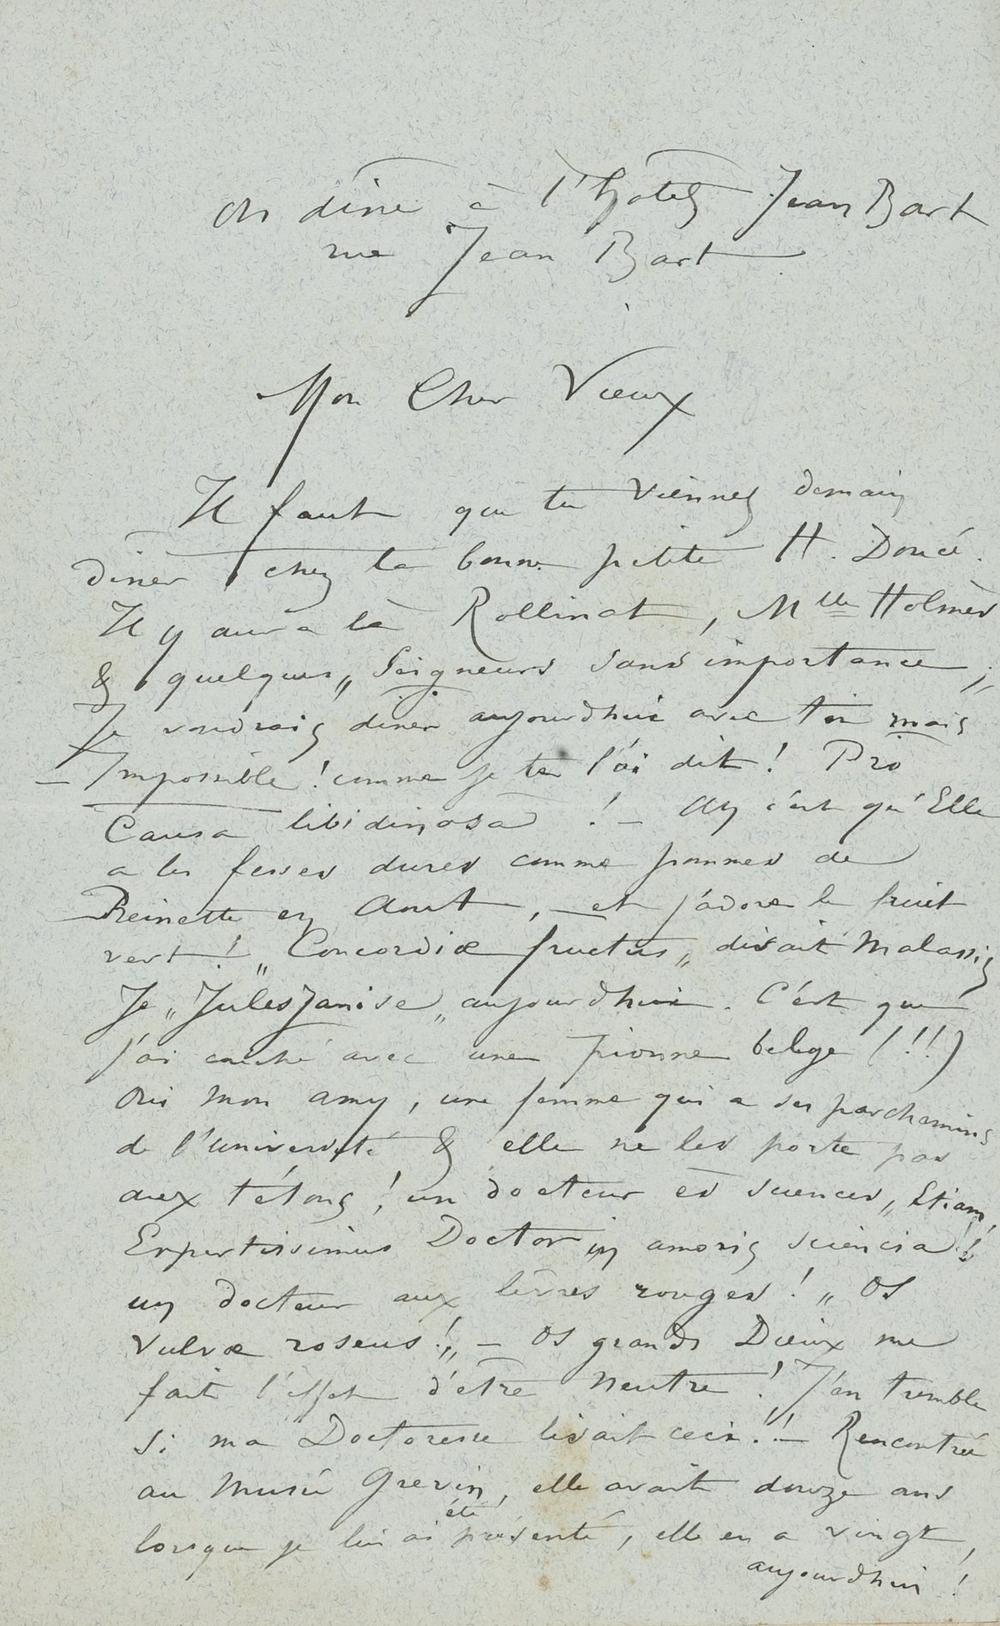 On dine à l'hôtel Jean Bart
rue Jean Bart
Mon Cher Vieux
Il faut que tu viennes demain
diner chez la bonne petite H. Doucé.
Il y aura là Rollinat, Mlle Holmès
& quelques „ Seigneurs sans importance „
Je voudrais diner aujourdhui avec toi mais
– Impossible ! comme je te l'ai dit ! Pro
Causa libidinosa ! – Ah c'est qu'Elle
a les fesses dures comme pommes de
Reinette en Aout, – et j'adore le fruit
vert ! „ Concordiæ fructus „ disait Malassis
Je „ Jules Janise „ aujourdhui. C'est que
j'ai couché avec une pionne belge (!!!)
Oui mon amy, une femme qui a ses parchemins
de l'université & elle ne les porte pas
aux tétons ! un docteur ès sciences, „ Etiam,
Expertissimus Doctor in amoris sciencia !!
un docteur aux lèvres rouges ! „ Os
Vulvæ roseus ! „ – Os grands Dieux me
fait l'effet d'etre neutre ! J'en tremble
si ma Doctoresse lisait ceci !! – Rencontrée
au Musée Grevin, elle avait douze ans
lorsque je lui ai été présenté, elle en a vingt,
aujourdhui !